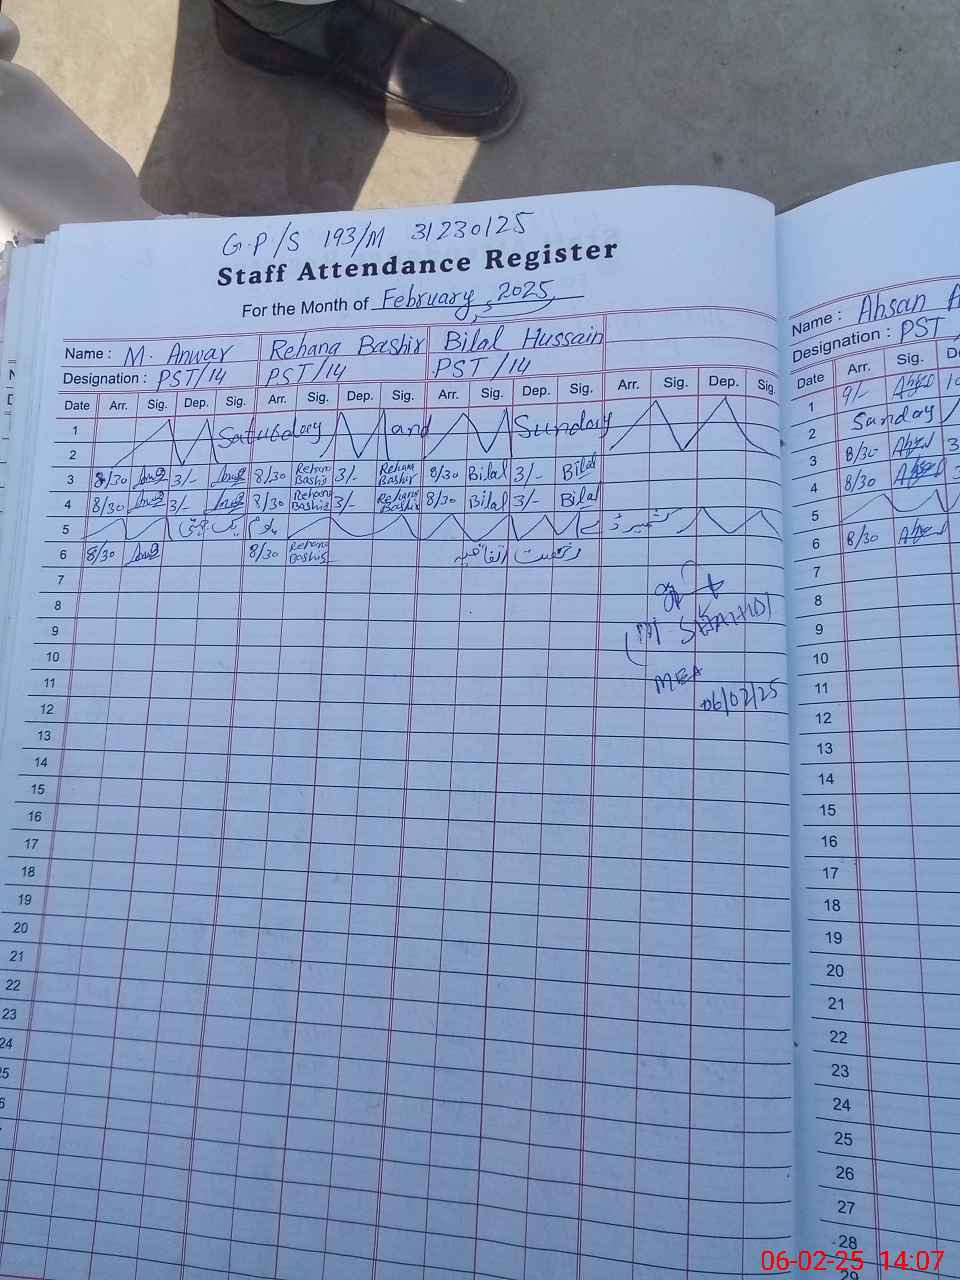 G.P/S 193/M 31230125
Staff Attendance Register
For the Month of February, 2025
Name : M. Anwar Rehana Bashir Bilal Hussain
Designation : PST/14 PST/14 PST/14
Date Arr. Sig. Dep. Sig. Arr. Sig. Dep. Sig. Arr. Sig. Dep. Sig. Arr. Sig. Dep. Sig.
1 Satuday and Sunday
2
3 8/30 3/- 8/30 Rehana Bashir 3/- Rehana Bashir 8/30 Bilal 3/- Bilal
4 8/30 3/- 8/30 Rehana Bashir 3/- Rehana Bashir 8/30 Bilal 3/- Bilal
5 یوم یک جہتی کشمیر ڈے
6 8/30 8/30 Rehana Bashir رخصت اتفاقیہ
7
8
9
10
11
12
13
14
15
16
17
18
19
20
21
22
23
24
MEA
06/02/25
Name : Ahsan
Designation : PST
Date Arr. Sig.
1 9/-
2 Sunday
3 8/30
4 8/30
5
6 8/30
7
8
9
10
11
12
13
14
15
16
17
18
19
20
21
22
23
24
25
26
27
28
29
06-02-25 14:07